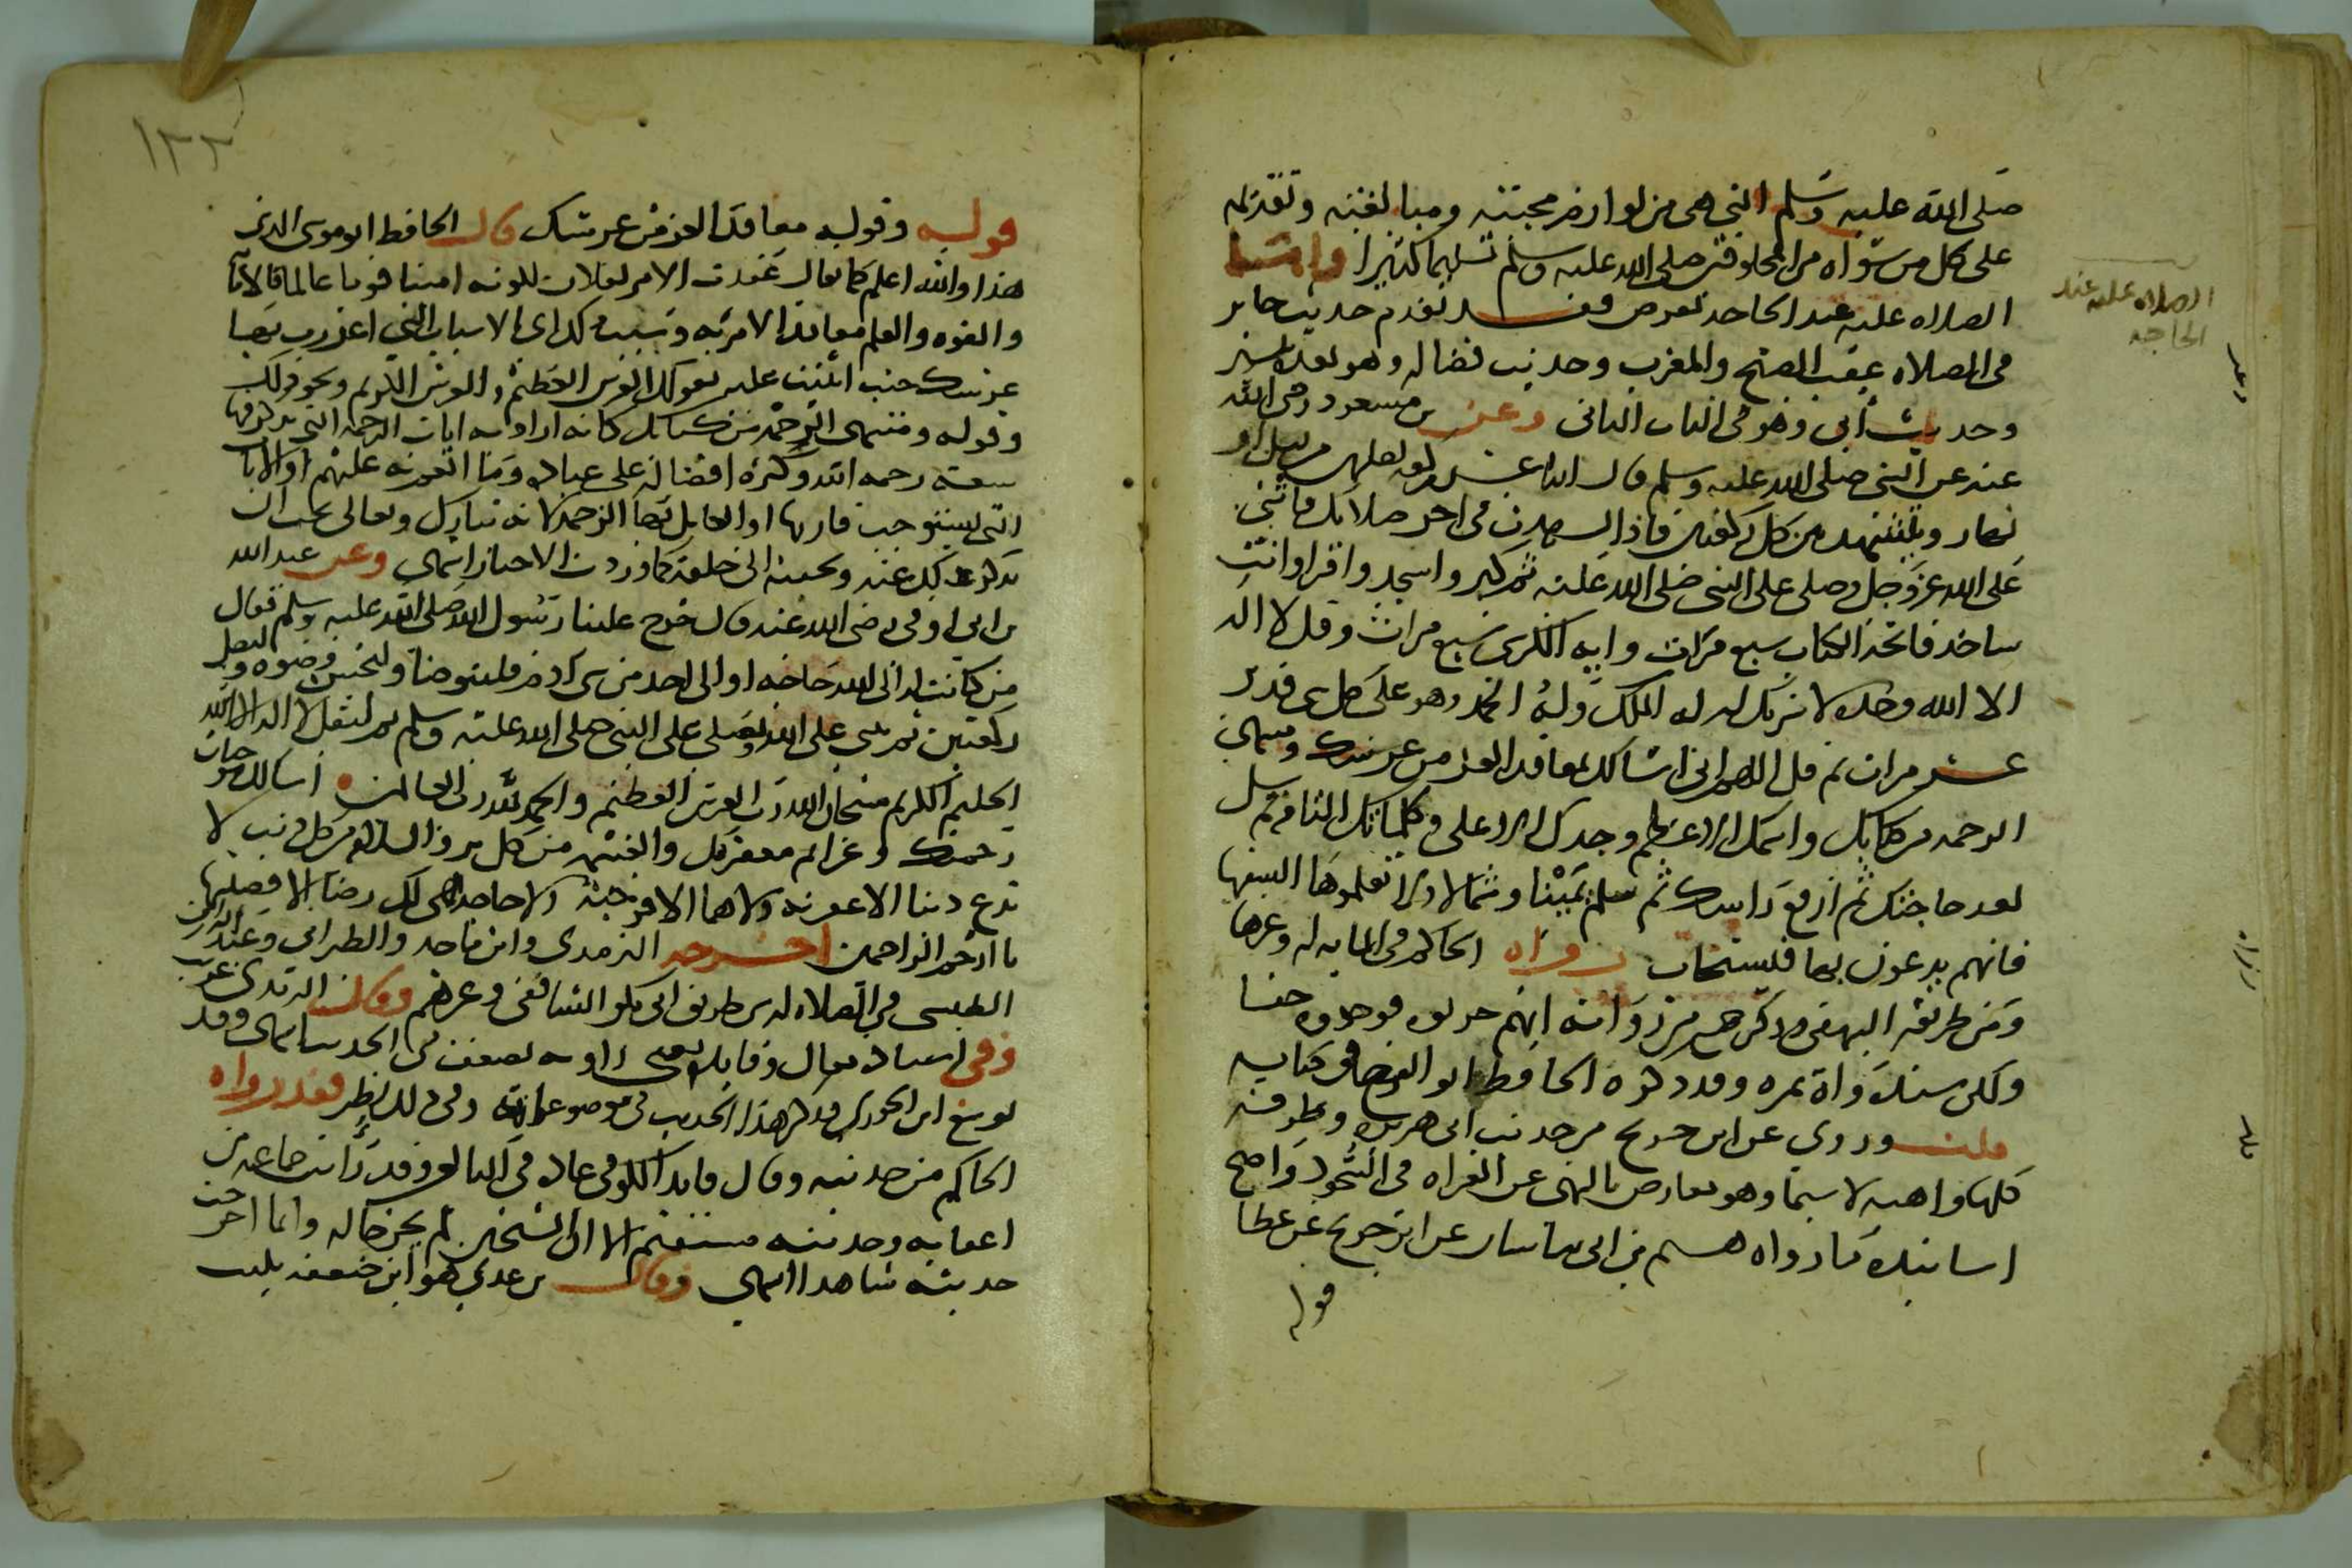 صلى الله عليه وسلم التي هي من لوازم محبته ومبالغته وتقديمه
على كل من سواه من المخلوقين صلى الله عليه وسلم تسليما كثيرا واما
الصلاه عليه عند الحاجه تعرض فقد تقدم حديث جابر
في الصلاه عقب الصبح والمغرب وحديث فضاله وهو بعد
وحديث أبي وهو في الباب الثاني وعن بن مسعود رضي الله
عنه عن النبي صلى الله عليه وسلم قال اثنا عشر ركعه تصليهن من ليل او
نهار وتتشهد بين كل ركعتين فاذا تشهدت في اخر صلاتك فاثني
على الله عز وجل وصلى على النبي صلى الله عليه ثم كبر واسجد واقرا وانت
ساجد فاتحة الكتاب سبع مرات وايه الكرسي سبع مرات وقل لا اله
الا الله وحده لا شريك له له الملك وله الحمد وهو على كل شي قدير
عشر مرات ثم قل اللهم اني اسالك بمعاقد العز من عرشك ومنتهى
الرحمه من كتابك واسمك الاعظم وجدك الاعلى وكلماتك التامه ثم سل
بعد حاجتك ثم ارفع راسك ثم سلم يمينا وشمالا ولا تعلموها السفها
فانهم يدعون بها فيستجاب رواه الحاكم في المايه له وغيرها
ومن طريقه البيهقي وذكر من رواته انهم جربوه فوجدوه حقا
ولكن سنده واة بمره وقد ذكره الحافظ ابو الفرج في كتابه
قلت وروي عن ابن جريج من حديث ابي هريره وطرقه
كلها واهيه لا سيما وهو معارض بالنهي عن القراه في السجود واصح
اسانيده ما رواه هشم بن ابي ساسان عن ابن جريج عن عطا
قوله
الصلاه عليه عند
الحاجه
١٢٢
قوله وقوله معاقد العز من عرشك قال الحافظ ابو موسى المديني
هذا والله اعلم كما يقال عقدت الامر بفلان لكونه امينا قويا عالما فالامانه
والقوه والعلم معاقد الامر به وسببه كذا اي الاسباب التي اعززت بها
عرشك حيث اثنيت عليه بقولك العرش العظيم والعرش الكريم ونحو ذلك
وقوله ومنتهى الرحمه من كتابك كانه اراد به ايات الرحمه التي يذكر فيها
سعة رحمه الله وكثرة افضاله على عباده وما انعم به عليهم او الايات
التي يستوجب قاريها او العامل بها الرحمه لانه تبارك وتعالى يحب ان
يذكر بذلك عنه ويحببه الى خلقه كما وردت الاخبار انتهى وعن عبد الله
بن ابي اوفى رضي الله عنه قال خرج علينا رسول الله صلى الله عليه وسلم فقال
من كانت له الى الله حاجه او الى احد من بني ادم فليتوضا وليحسن وضوه وليصل
ركعتين ثم يثني على الله ويصلي على النبي صلى الله عليه وسلم ثم ليقل لا اله الا الله
الحليم الكريم سبحان الله رب العرش العظيم والحمد لله رب العالمين اسالك موجبات
رحمتك وعزايم مغفرتك والغنيمه من كل بر والسلامه من كل ذنب لا
تدع ذنبا الا غفرته ولا هما الا فرجته ولا حاجه هي لك رضا الا قضيتها
يا ارحم الراحمين اخرجه الترمذي وابن ماجه والطبراني وعبد الرزاق
الطبسي في الصلاه له من طريق ابي بكر الشافعي وغيرهم وقال الترمذي غريب
وفي اسناده مقال وفايد يعني راويه يضعف في الحديث انتهى وقد
توسع ابن الجوزي فذكر هذا الحديث في موضوعاته وفي ذلك نظر فقد رواه
الحاكم من حديثه وقال فايد الكوفي عداده في التابعين وقد رايت جماعه من
اعقابه وحديثه مستقيم الا ان الشيخين لم يخرجا له وانما اخرجت
حديثه شاهدا انتهى وقال بن عدي هو ابن ضعفه يكتب